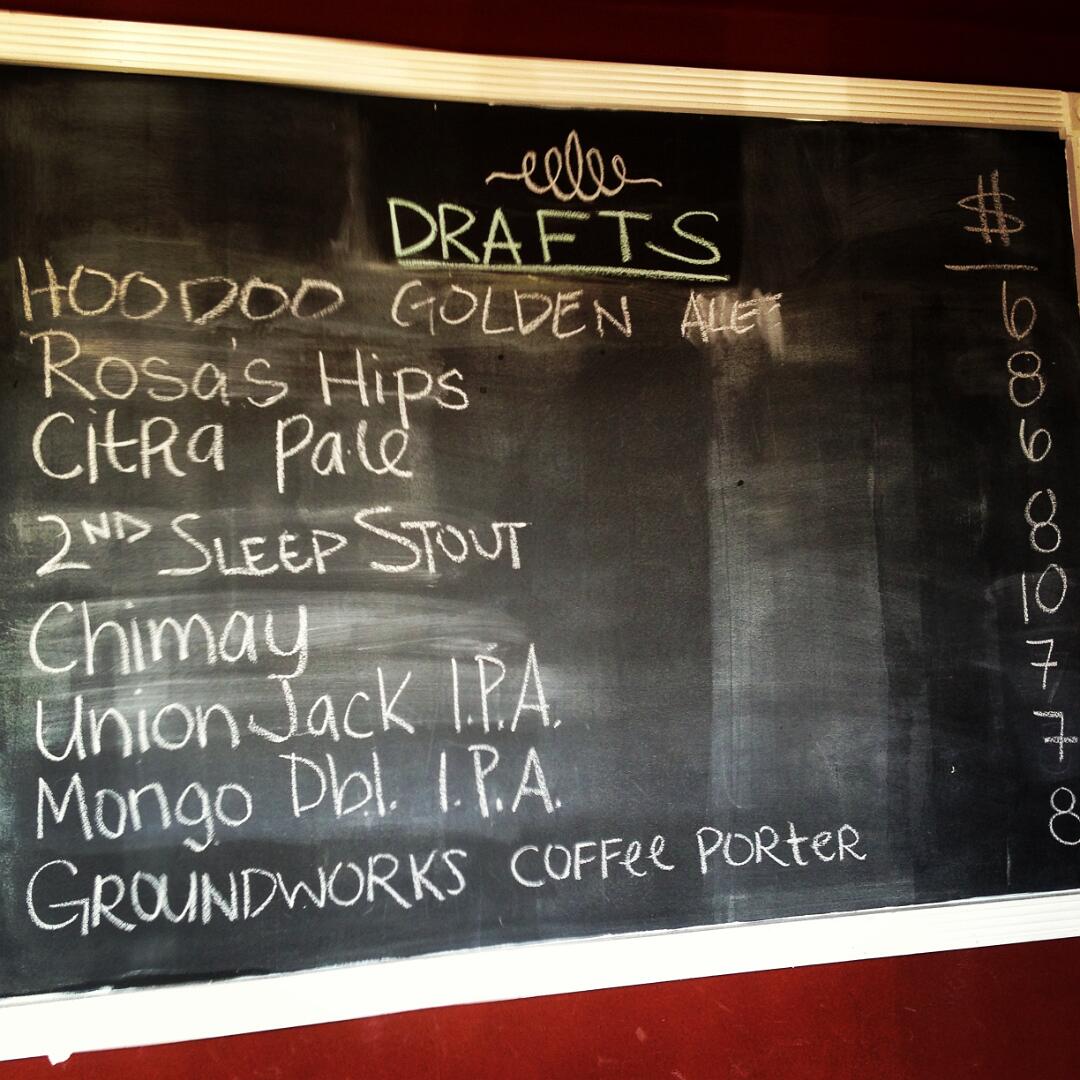 DRAFTS $
HOODOO GOLDEN ALE 6
Rosa's Hips 8
Citra Pale 6
2ND SLEEP STOUT 8
Chimay 10
Union Jack I.P.A. 7
Mongo Dbl. I.P.A. 7
GROUNDWORKS COFFee PORteR 8